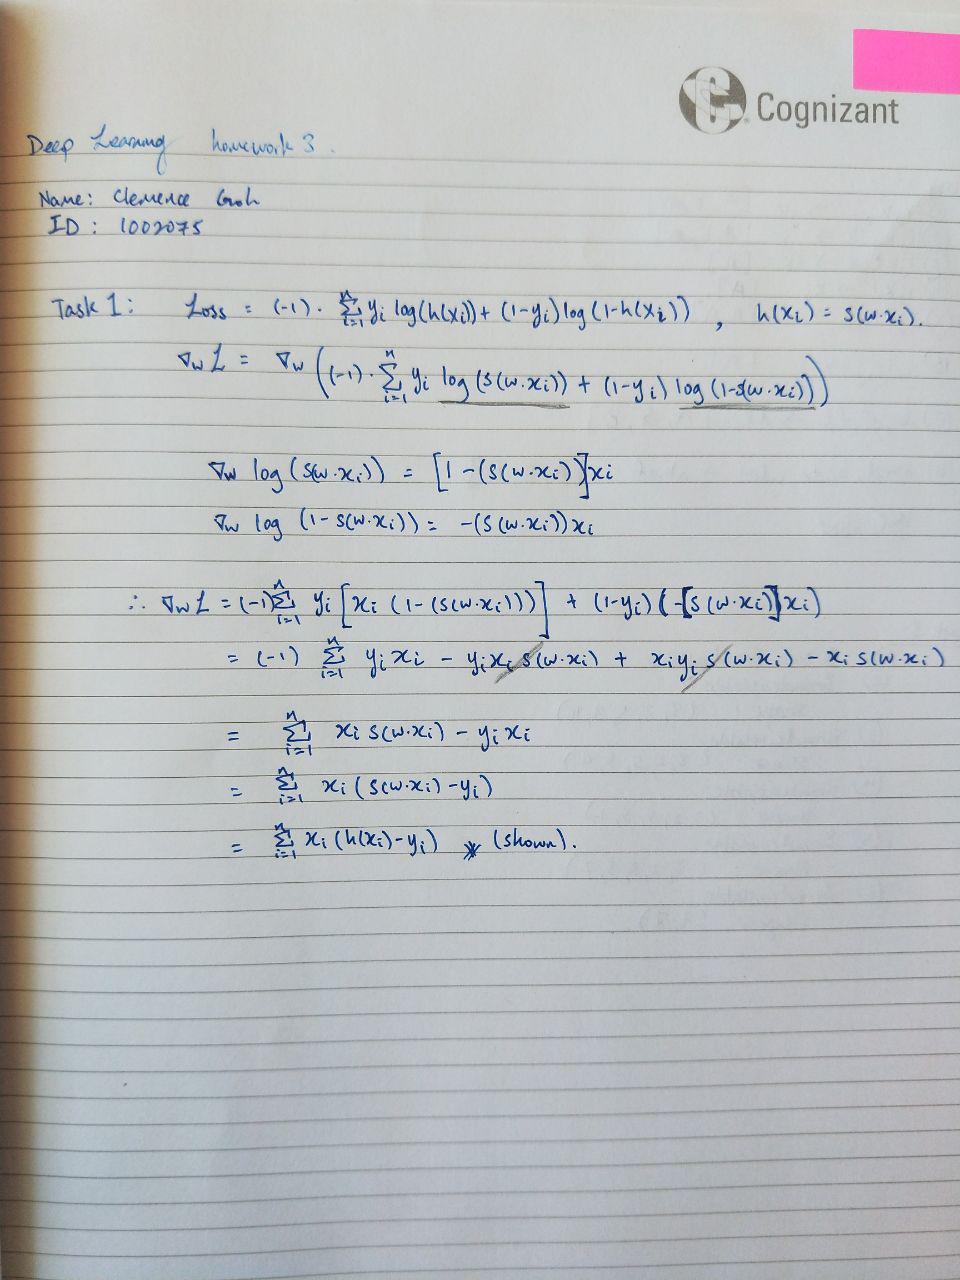 Cognizant
Deep Learning homework 3.
Name: Clemence Goh
ID: 1002075
Task 1: Loss = (-1) · n∑i=1 yi log(h(xi)) + (1-yi) log(1-h(xi)) , h(xi) = s(w·xi).
∇w L = ∇w ((-1) · n∑i=1 yi log(s(w·xi)) + (1-yi) log(1-s(w·xi)))
∇w log(s(w·xi)) = [1-(s(w·xi))]xi
∇w log(1-s(w·xi)) = -(s(w·xi))xi
∴ ∇w L = (-1) n∑i=1 yi [xi (1-(s(w·xi)))] + (1-yi)(-[s(w·xi)]xi)
= (-1) n∑i=1 yixi - yixi s(w·xi) + xiyi s(w·xi) - xi s(w·xi)
= n∑i=1 xi s(w·xi) - yixi
= n∑i=1 xi (s(w·xi) - yi)
= n∑i=1 xi (h(xi) - yi) (shown).